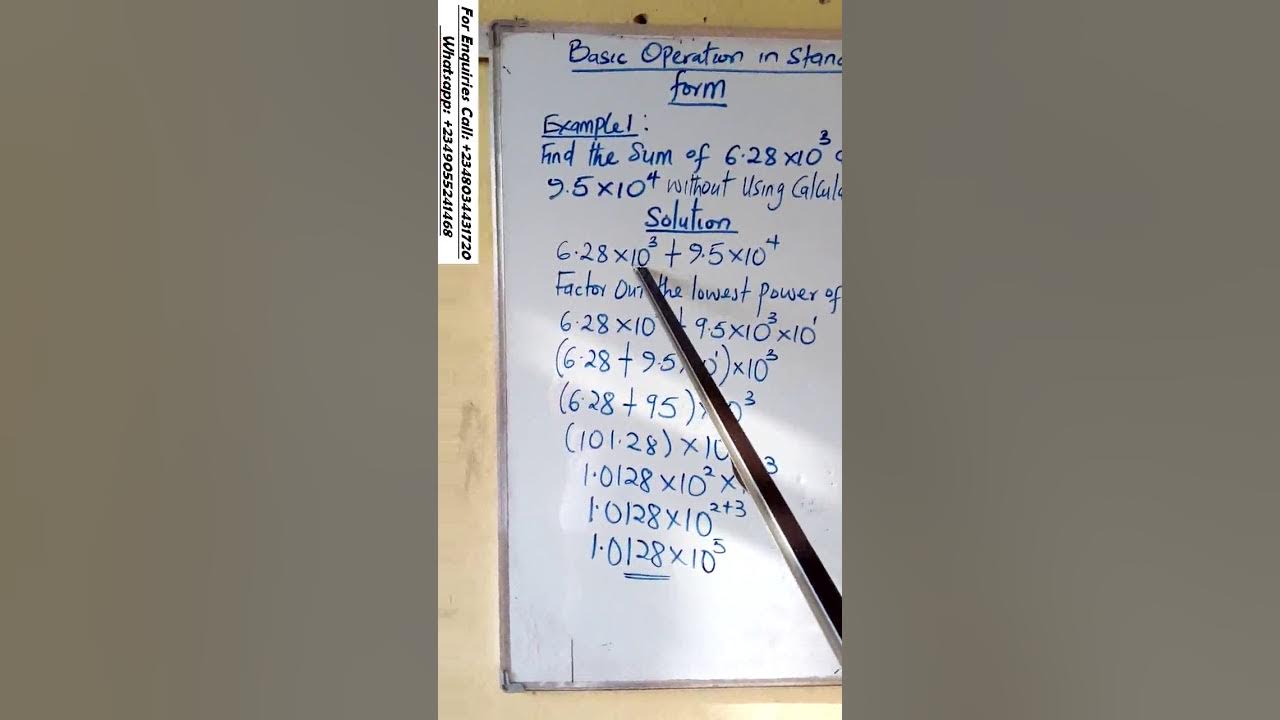 For Enquiries Call: +2348034431720
Whatsapp: +2349055241468
Basic Operation in Stand
form
Example 1:
Find the Sum of 6.28×10³
9.5×10⁴ without Using Calcul
Solution
6.28×10³ + 9.5×10⁴
Factor Out the lowest power of
6.28×10 + 9.5×10³×10¹
(6.28 + 9.5 10¹)×10³
(6.28 + 95)×10³
(101.28)×10
1.0128×10²× ³
1.0128×10²⁺³
1.0128×10⁵